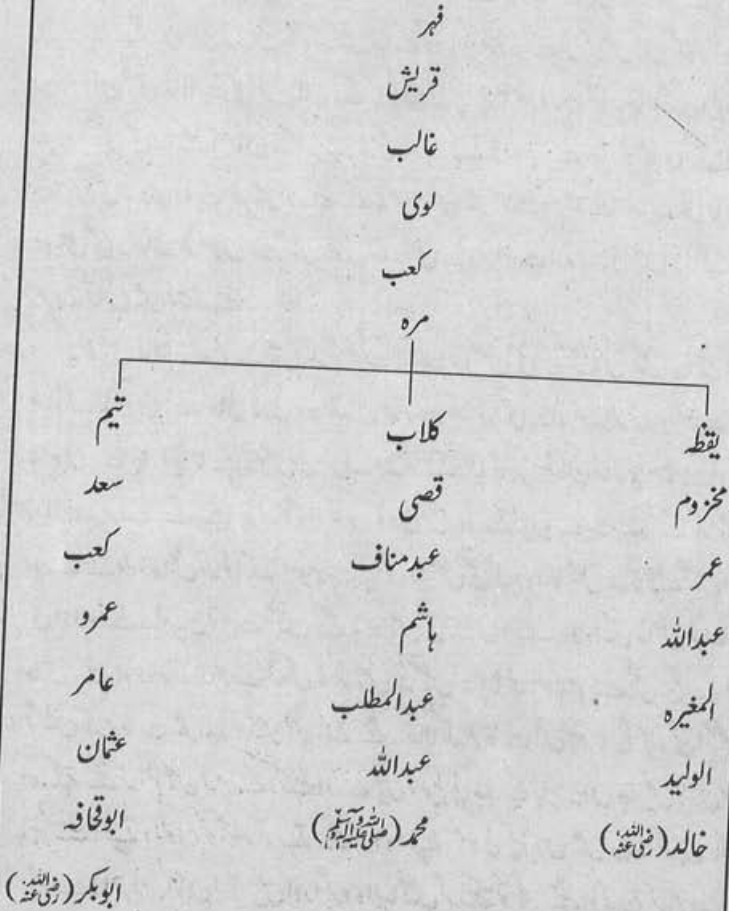 فہر
قریش
غالب
لوی
کعب
مرہ
یقظہ
مخزوم
عمر
عبداللہ
المغیرہ
الولید
خالد (رضی اللہ عنہ)
کلاب
قصی
عبدمناف
ہاشم
عبدالمطلب
عبداللہ
محمد (صلی اللہ علیہ وآلہ وسلم)
تیم
سعد
کعب
عمرو
عامر
عثمان
ابوقحافہ
ابوبکر (رضی اللہ عنہ)